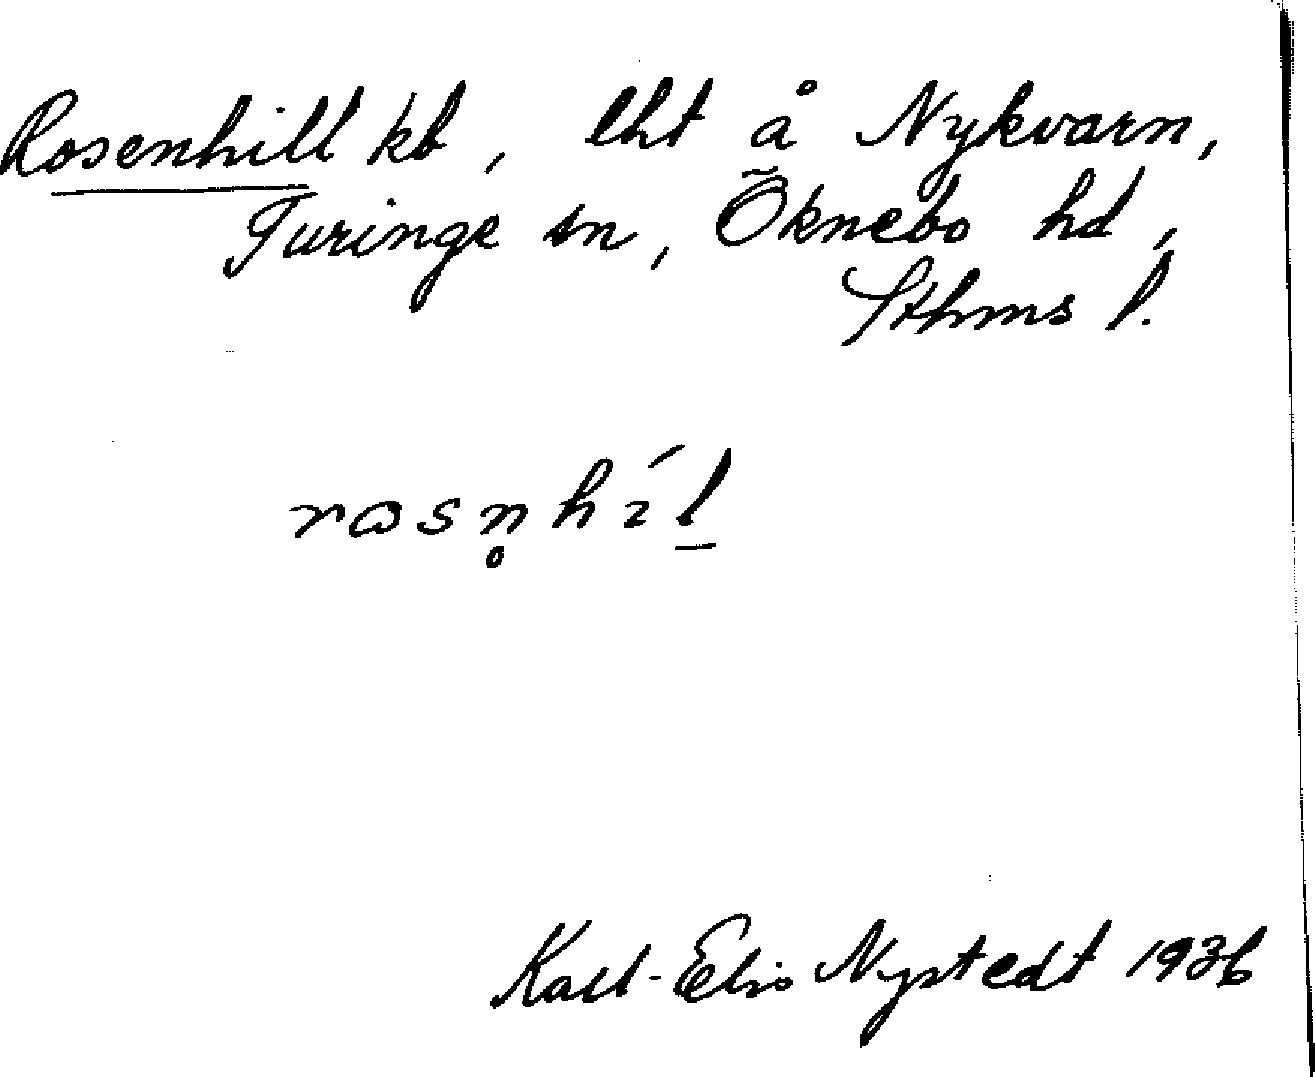 Rosenhill kb, lht å Nykvarn,
Turinge sn, Öknebo hd,
Sthms l.
rɷsn̥hı́l̲
Karl-Eric Nystedt 1936